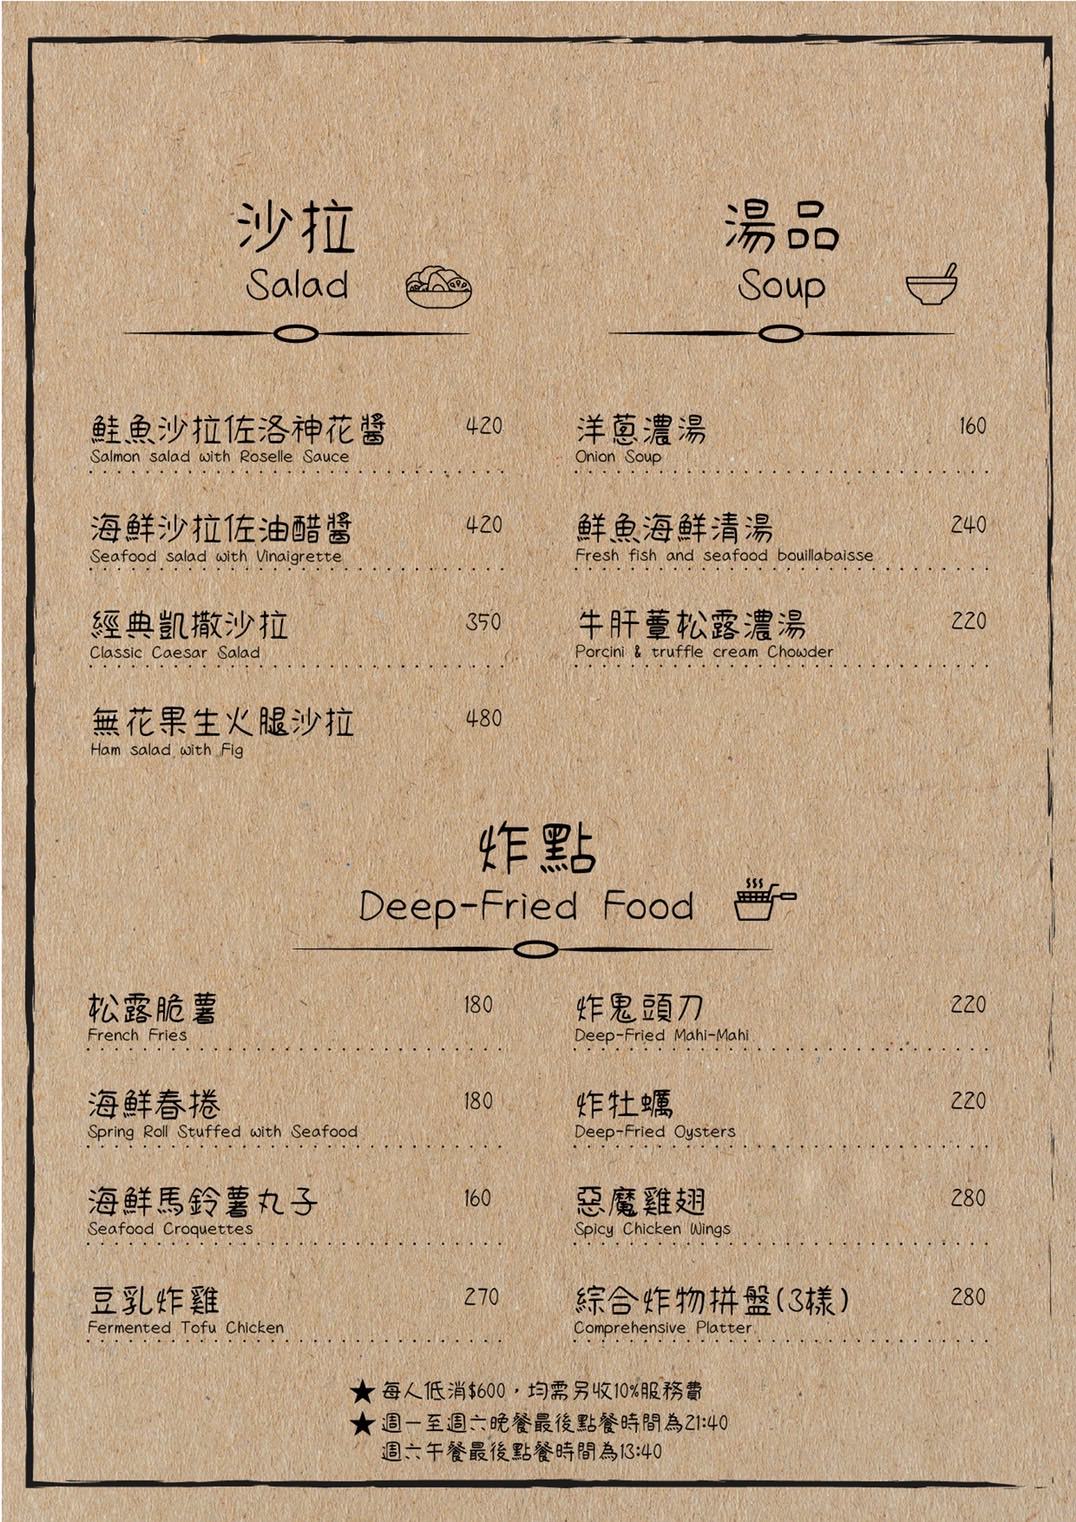 沙拉
Salad
鮭魚沙拉佐洛神花醬 420
Salmon salad with Roselle Sauce
海鮮沙拉佐油醋醬 420
Seafood salad with Vinaigrette
經典凱撒沙拉 350
Classic Caesar Salad
無花果生火腿沙拉 480
Ham salad with Fig
湯品
Soup
洋蔥濃湯 160
Onion Soup
鮮魚海鮮清湯 240
Fresh fish and seafood bouillabaisse
牛肝蕈松露濃湯 220
Porcini & truffle cream Chowder
炸點
Deep-Fried Food
松露脆薯 180
French Fries
海鮮春捲 180
Spring Roll Stuffed with Seafood
海鮮馬鈴薯丸子 160
Seafood Croquettes
豆乳炸雞 270
Fermented Tofu Chicken
炸鬼頭刀 220
Deep-Fried Mahi-Mahi
炸牡蠣 220
Deep-Fried Oysters
惡魔雞翅 280
Spicy Chicken Wings
綜合炸物拼盤(3樣) 280
Comprehensive Platter
★ 每人低消$600，均需另收10%服務費
★ 週一至週六晚餐最後點餐時間為21:40
週六午餐最後點餐時間為13:40